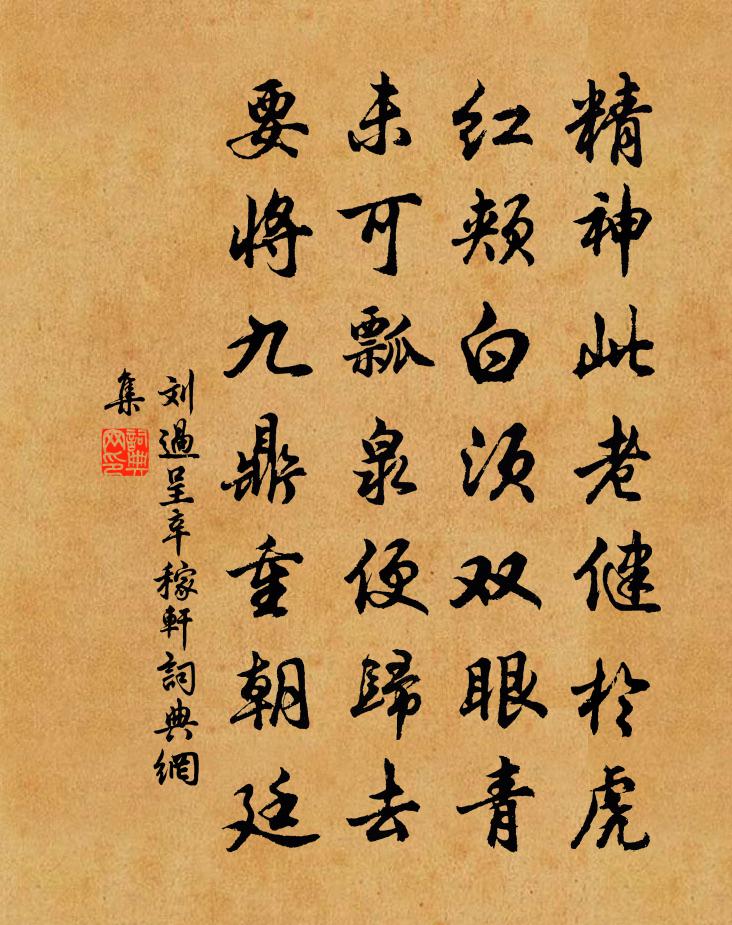 精神此老健於虎
红颊白须双眼青
未可瓢泉便歸去
要將九鼎重朝廷
刘過呈辛稼軒詞典網
集
詞典網印